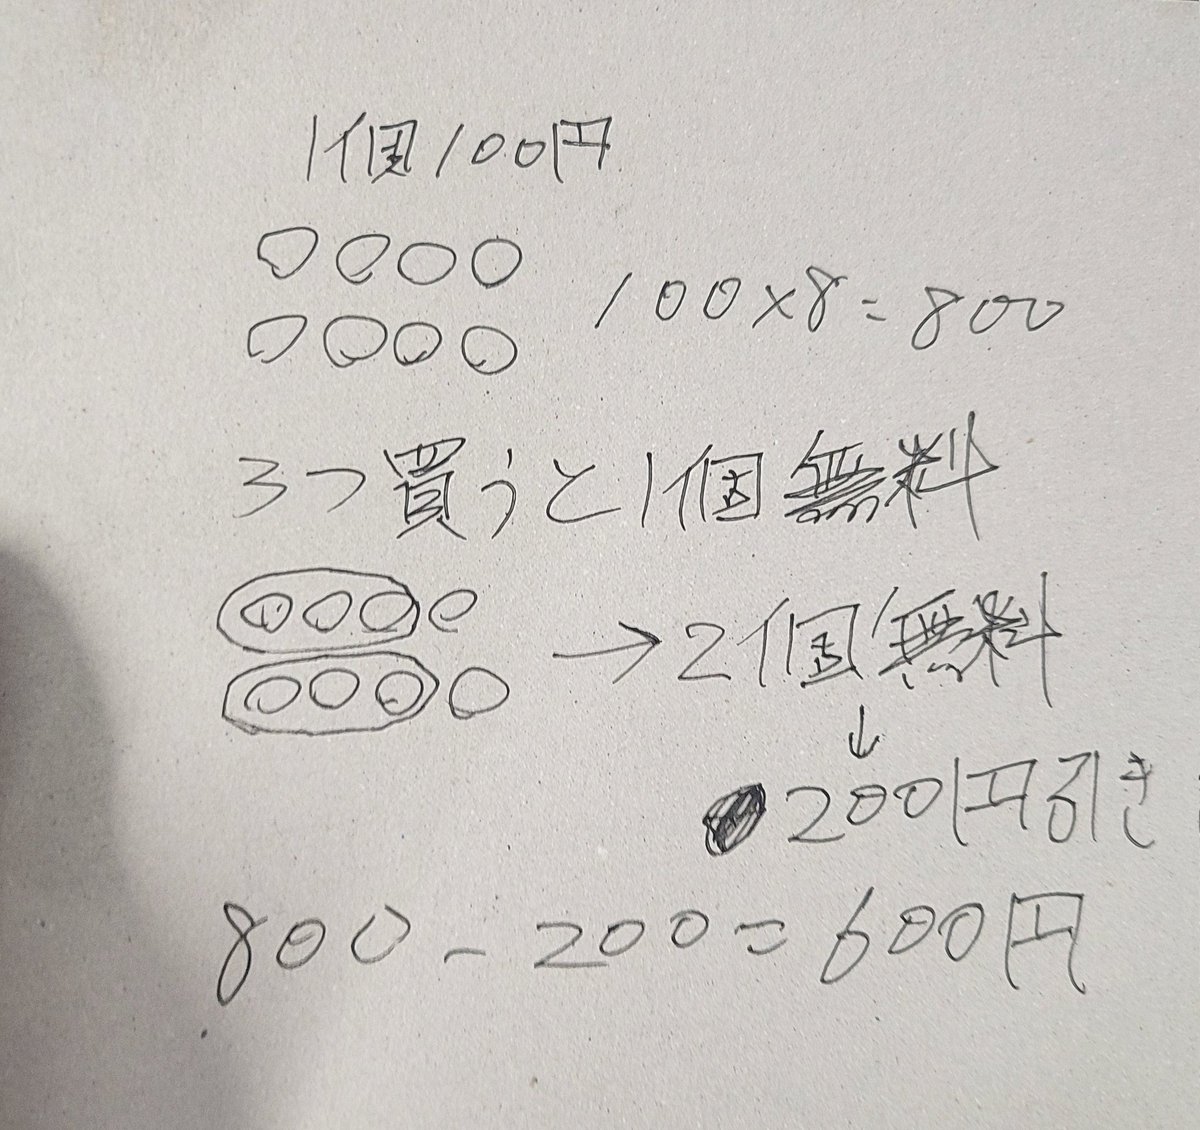 1個100円
100×8=800
3つ買うと1個無料
→2個無料
↓
200円引き
800-200=600円